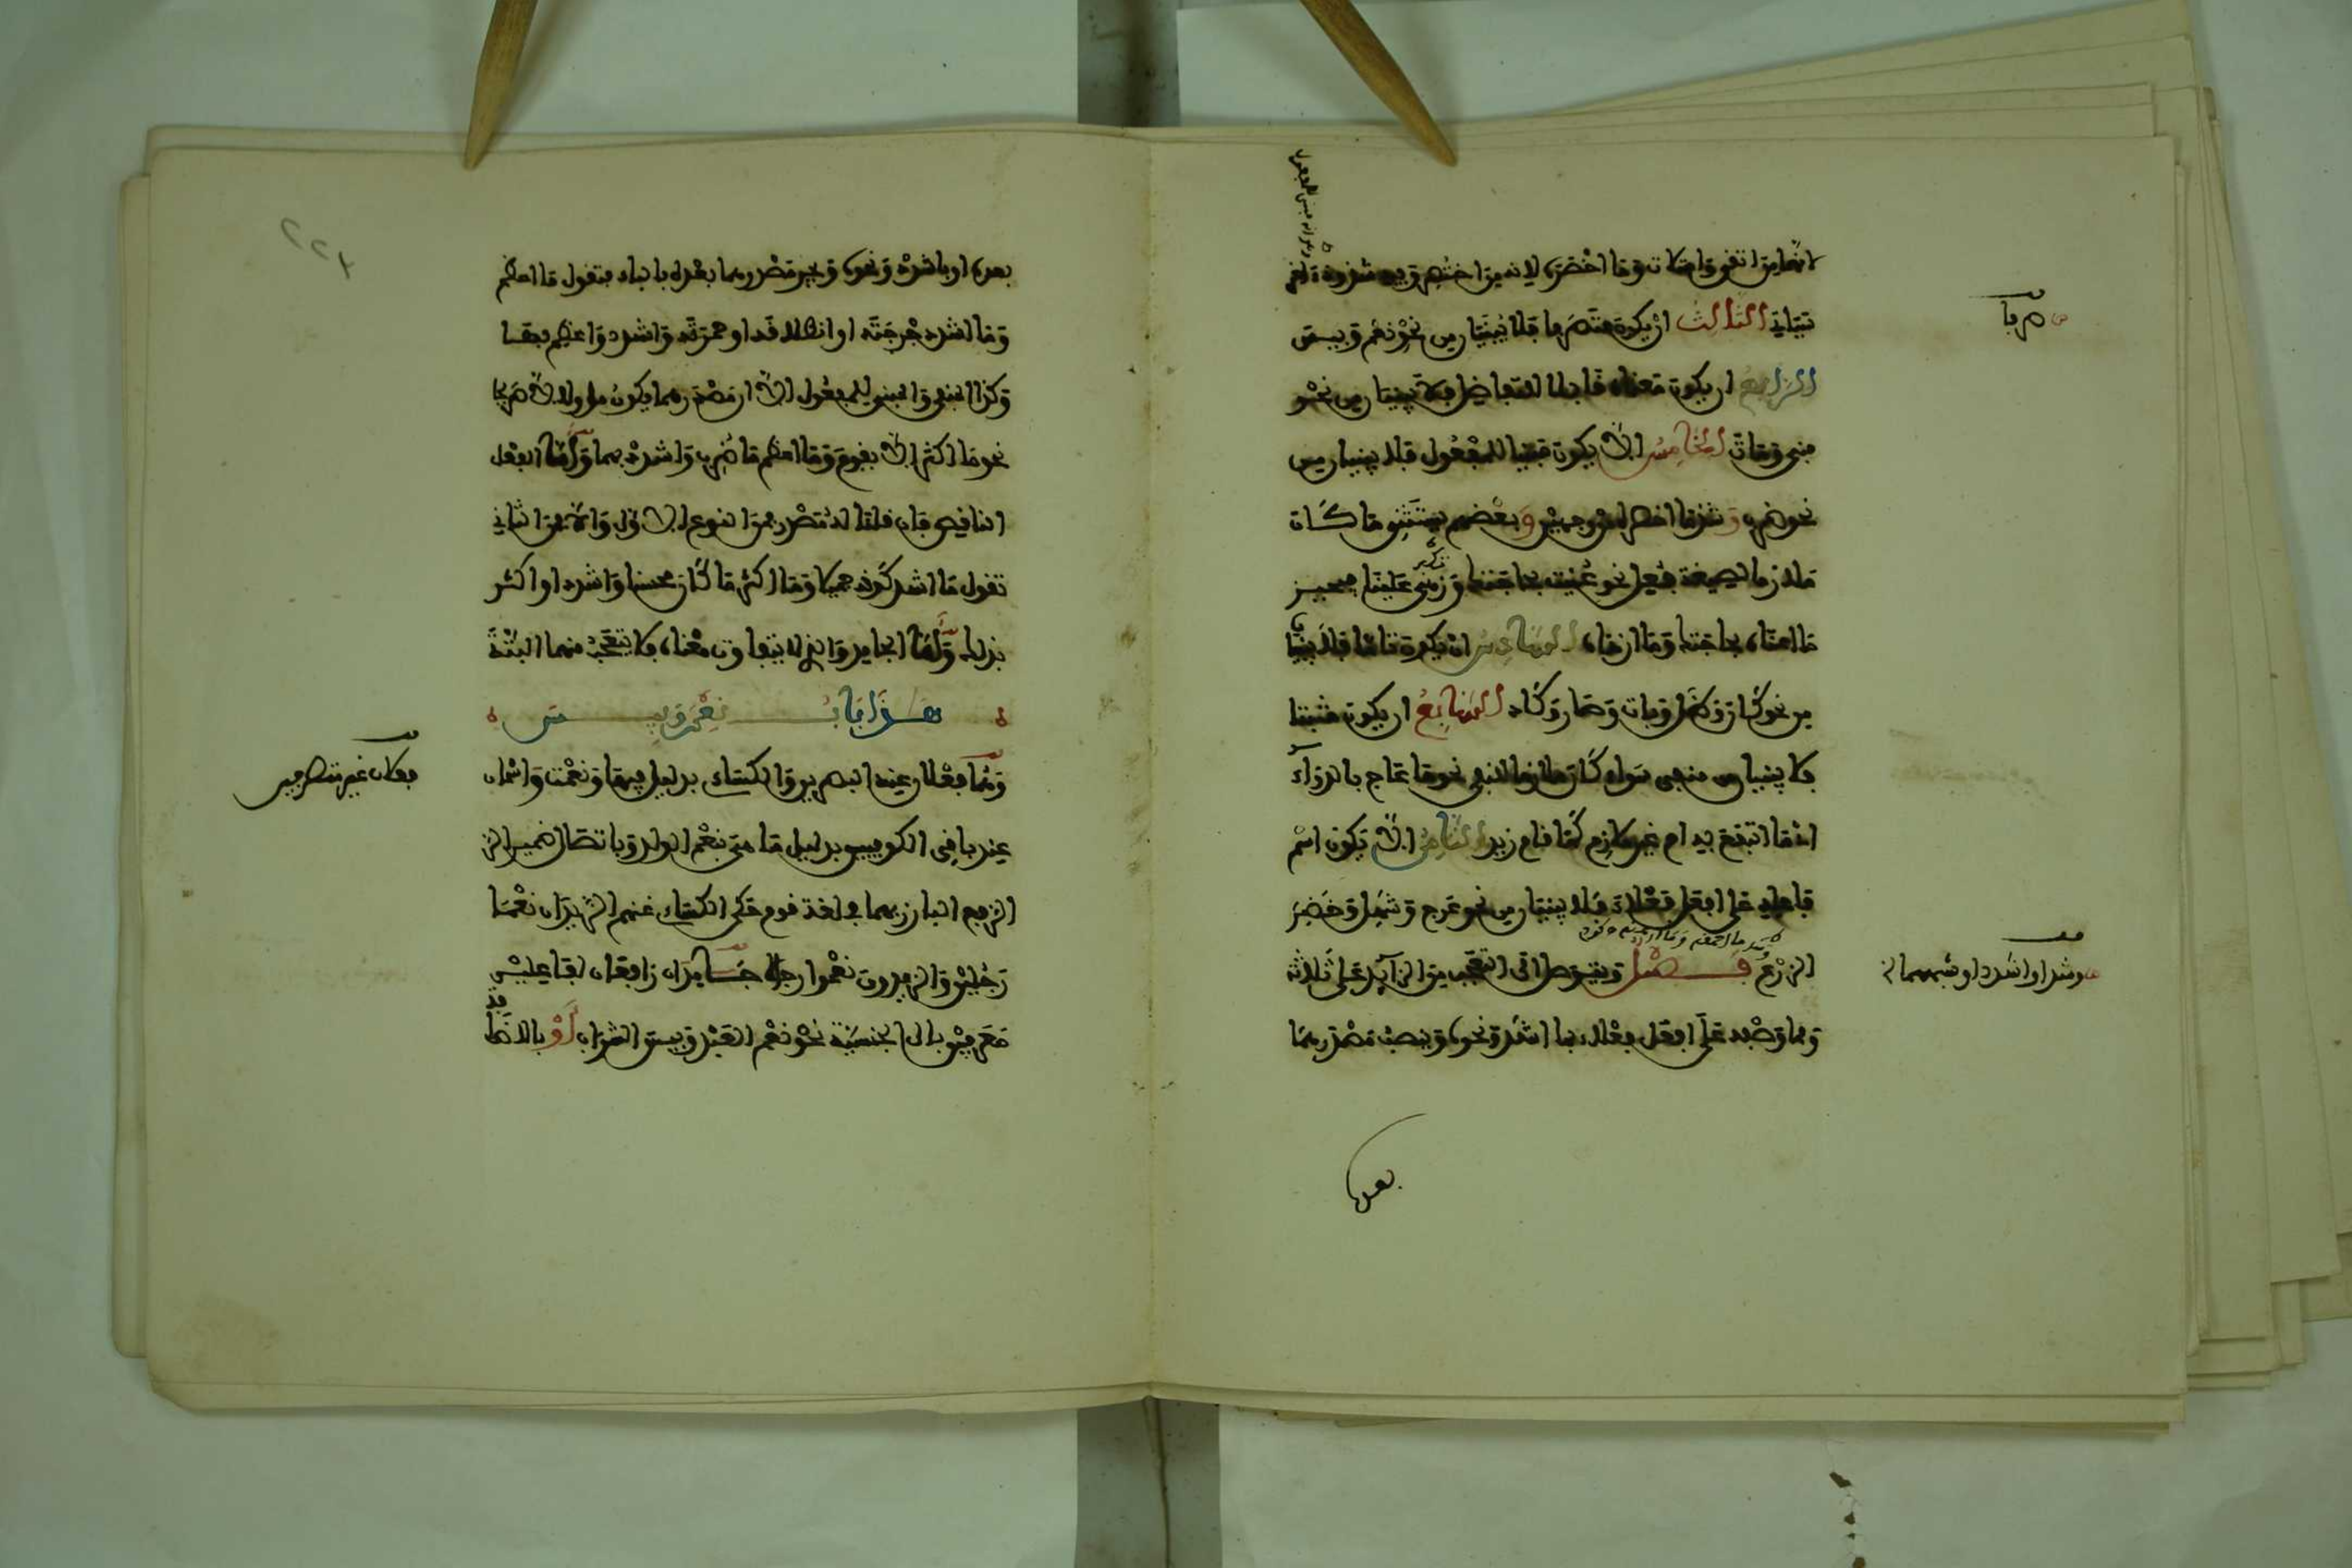 انهما من اتقى وامتلات وما اخصره لانه من اختصر وفيه شذوذ اخر
سياتي الثالث ان يكون متصرفا فلا يبنيان من نحو نعم وبيس
الرابع ان يكون معناه قابلا للتفاضل فلا يبنيان من نحو
فنى ومات الخامس الا يكون مبنيا للمفعول فلا يبنيان من
نحو ضرب وشذ ما اخصره من وجهين وبعضهم يستثني ما كان
ملازما لصيغة فعل نحو عنيت بحاجتك وزهي علينا فيجيز
ما اعناه بحاجتك وما ازهاه السادس ان يكون تاما فلا يبنيان
من نحو كان وظل وبات وصار وكاد السابع ان يكون مثبتا
فلا يبنيان من منفي سواء كان ملازما للنفي نحو ما عاج بالدواء
اي ما انتفع به ام غير ملازم كما قام زيد الثامن الا يكون اسم
فاعله على افعل فعلاء فلا يبنيان من نحو عرج وشهل وخضر
الزرع فصل ويتوصل الى التعجب من الزايد على ثلاثة
ومما وصفه على افعل فعلاء بما اشد ونحوه وينصب مصدرهما
بعده
ص صرفا
بما اشد او اشدد او شبههما
بعده او باشدد ونحوه ويجر مصدرهما بعده بالباء فتقول ما اعظم
وما اشد دحرجته او انطلاقه او حمرته واشدد واعظم بها
وكذا المنفي والمبني للمفعول الا ان مصدرهما يكون مؤولا لا صريحا
نحو ما اكثر الا يقوم وما اعظم ما ضرب واشدد بهما واما الفعل
الناقص فان قلنا له مصدر فمن النوع الاول والا فمن الثاني
تقول ما اشد كونه جميلا وما اكثر ما كان محسنا واشدد او اكثر
بذلك واما الجامد والذي لا يتفاوت معناه فلا يتعجب منهما البتة
هذا باب نعم وبيس
وهما فعلان عند البصريين والكساءي بدليل فبها ونعمت واسمان
عند باقي الكوفيين بدليل ما هي بنعم الولد وباتصال ضمير الر
الرفع البارز بهما في لغة قوم حكى الكساءي عنهم الزيدان نعما
رجلين والزيدون نعموا رجالا جامدان رافعان لفاعلين
معرفين بال الجنسية نحو نعم العبد وبيس الشراب او بالاضافة
فعلان غير متصرفين